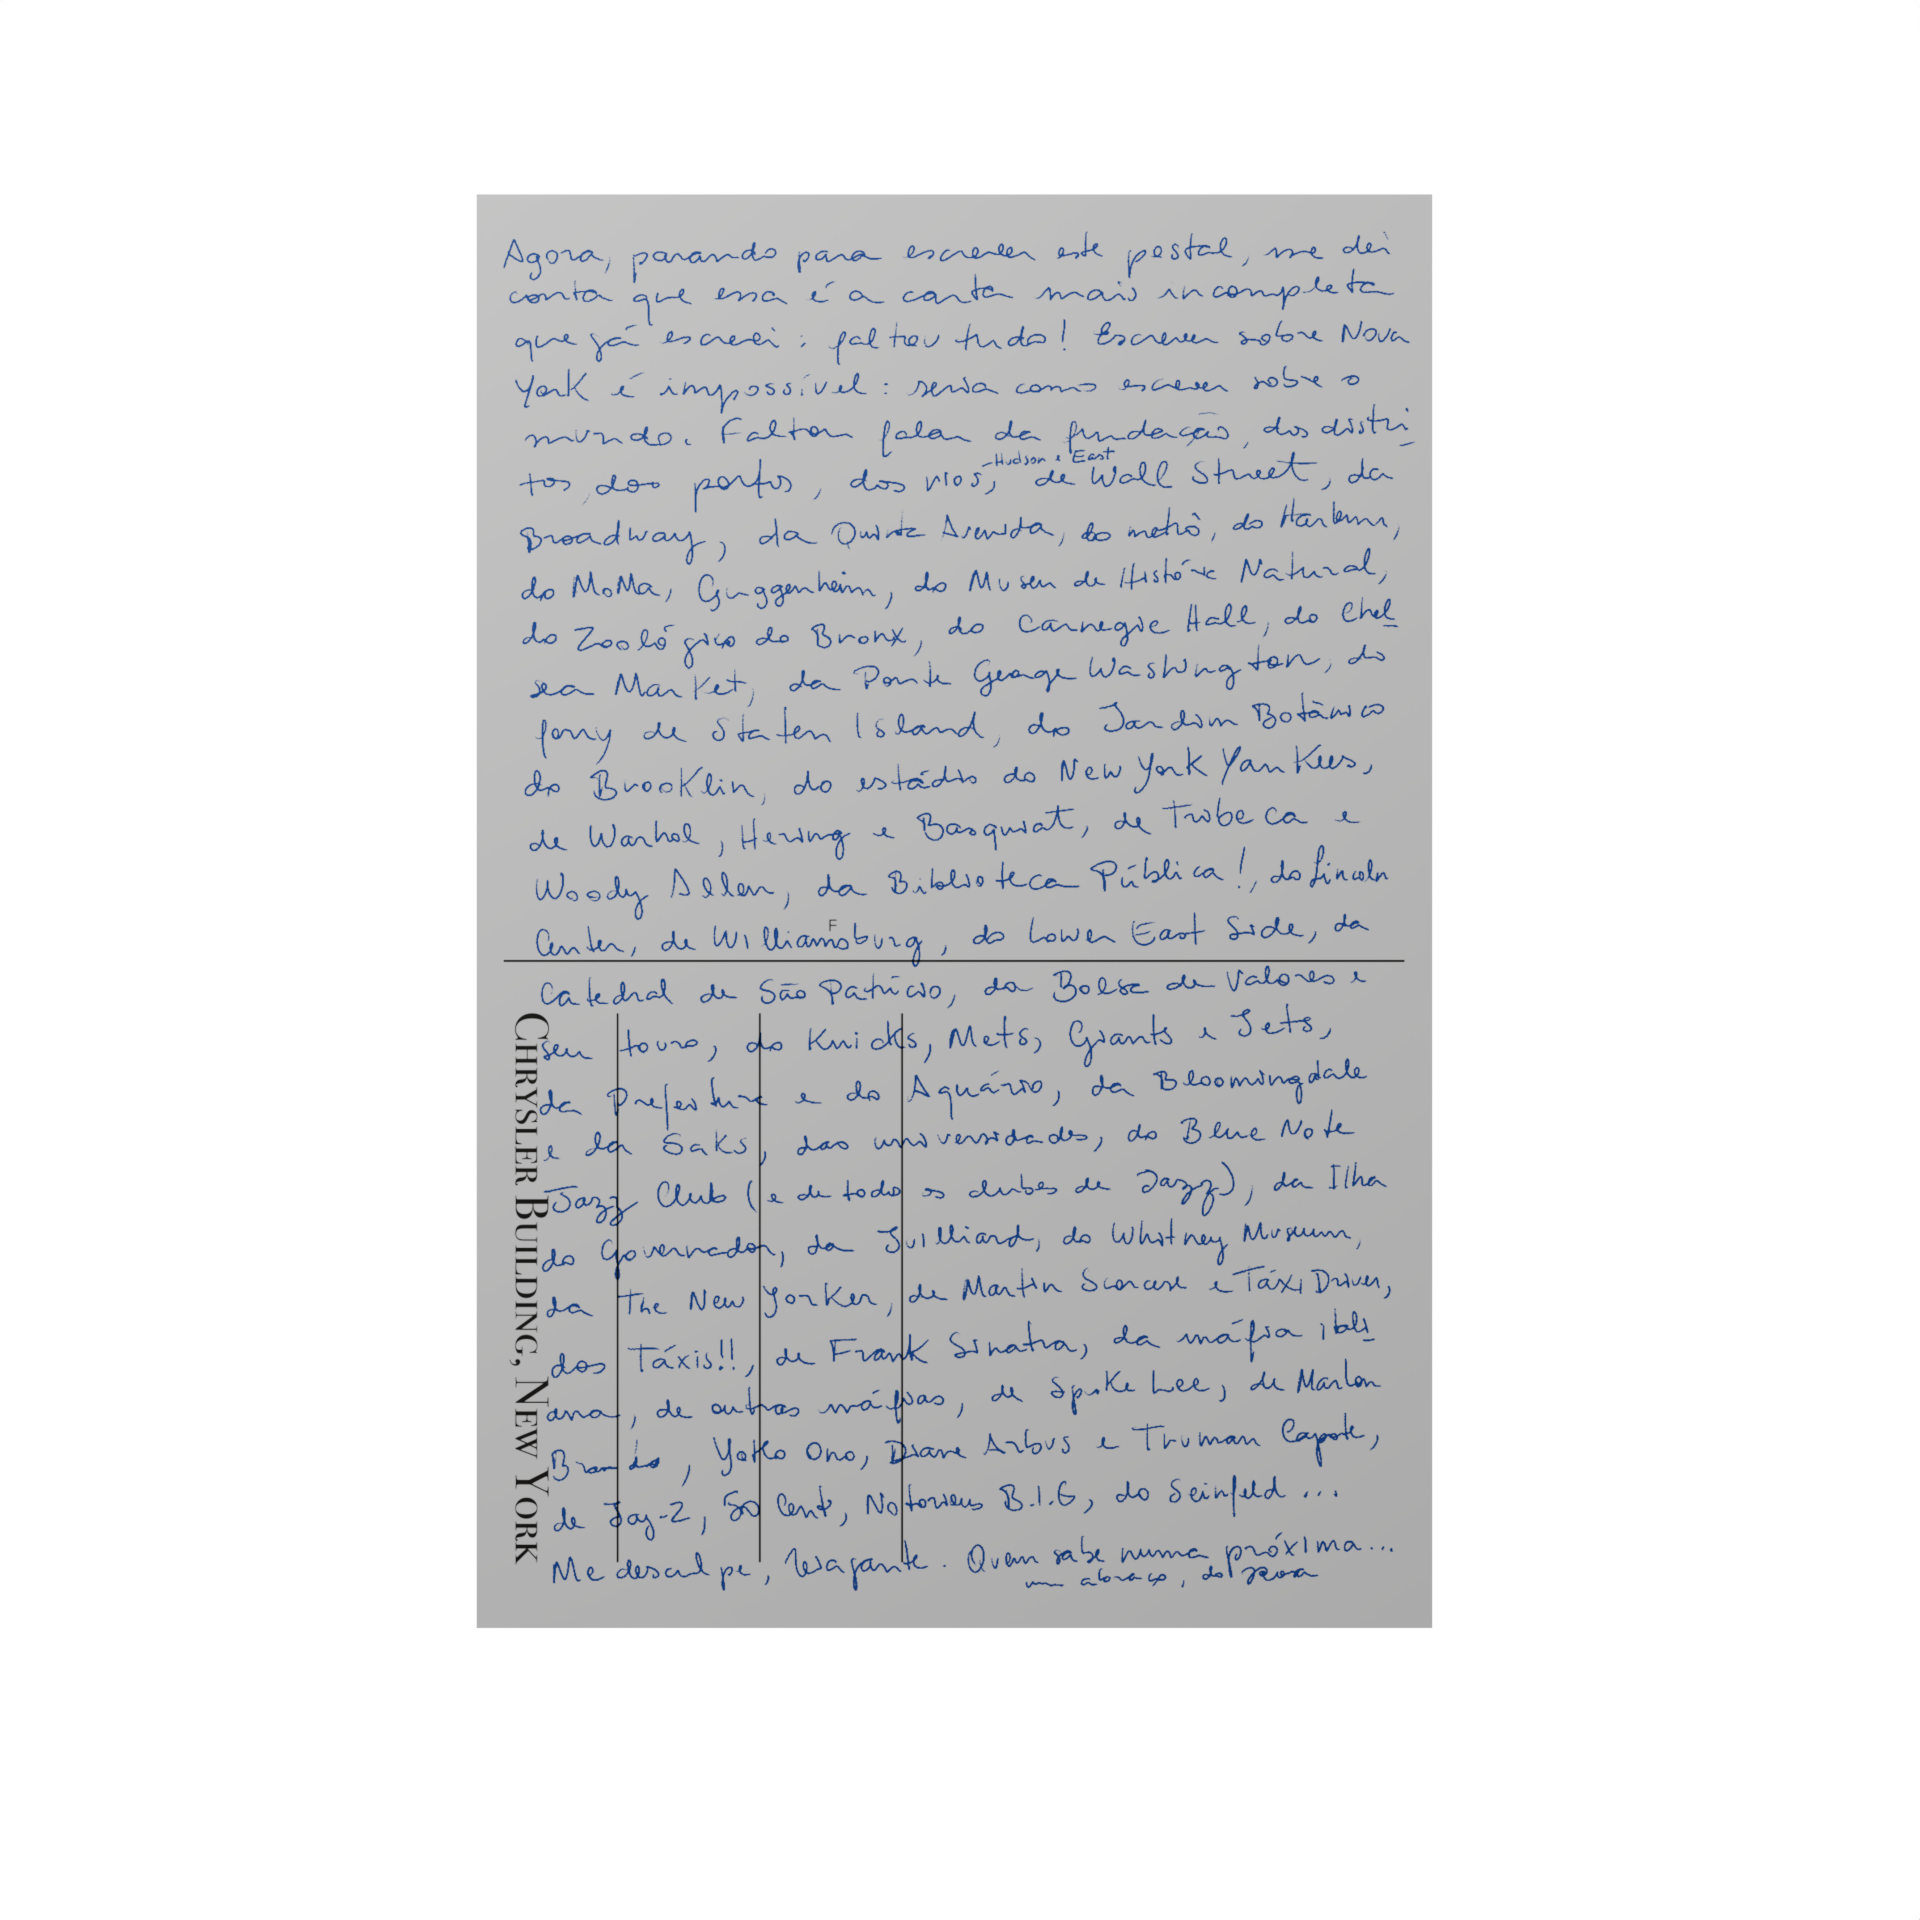 Agora, parando para escrever este postal, me dei
conta que essa é a carta mais incompleta
que já escrevi: faltou tudo! Escrever sobre Nova
York é impossível: seria como escrever sobre o
mundo. Faltou falar da fundação, dos distri-
tos, dos portos, dos rios, de Wall Street, da
-Hudson e East
Broadway, da Quinta Avenida, do metrô, do Harlem,
do MoMa, Guggenheim, do Museu de História Natural,
do Zoológico do Bronx, do Carnegie Hall, do Chel-
sea Market, da Ponte George Washington, do
ferry de Staten Island, do Jardim Botânico
do Brooklin, do estádio do New York Yankees,
de Warhol, Hering e Basquiat, de Tribeca e
Woody Allen, da Biblioteca Pública!, do Lincoln
Center, de Williamsburg, do Lower East Side, da
F
Catedral de São Patrício, da Bolsa de Valores e
seu touro, do Knicks, Mets, Giants e Jets,
da Prefeitura e do Aquário, da Bloomingdale
e da Saks, das universidades, do Blue Note
Jazz Club (e de todos os clubes de Jazz), da Ilha
do Governador, da Juilliard, do Whitney Museum,
da The New Yorker, de Martin Scorcese e Táxi Driver,
dos Táxis!!, de Frank Sinatra, da máfia itali-
ana, de outras máfias, de Spike Lee, de Marlon
Brando, Yoko Ono, Diane Arbus e Truman Capote,
de Jay-Z, 50 Cent, Notorious B.I.G, do Seinfeld ...
Me desculpe, viajante. Quem sabe numa próxima...
um abraço, do
CHRYSLER BUILDING, NEW YORK